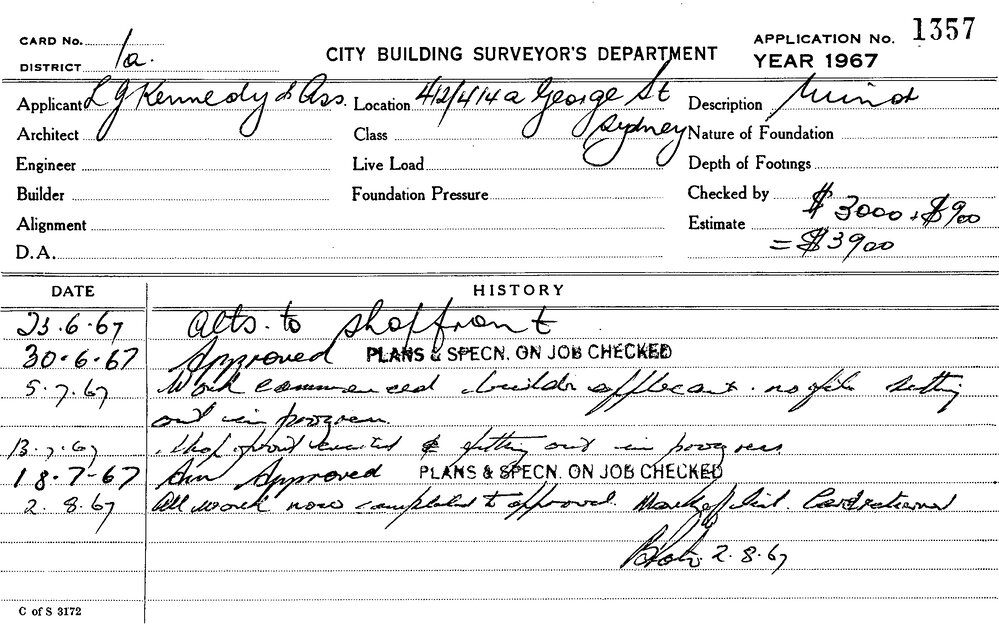 CARD No.
DISTRICT 1a.
CITY BUILDING SURVEYOR'S DEPARTMENT
APPLICATION No. 1357
YEAR 1967
Applicant L J Kennedy & Ass. Location 412/414a George St Sydney Description Minor
Architect Class Nature of Foundation
Engineer Live Load Depth of Footings
Builder Foundation Pressure Checked by
Alignment Estimate $3000 + $900
D.A. = $3900
DATE HISTORY
23.6.67 alts. to shopfront
30.6.67 Approved PLANS & SPECN. ON JOB CHECKED
5.7.67 Work commenced builder applicant. setting
out in progress.
13.7.67 Shop front & fitting out in progress
18.7-67 Am Approved PLANS & SPECN. ON JOB CHECKED
2.8.67 All work now completed to approval. Card returned
2.8.67
C of S 3172